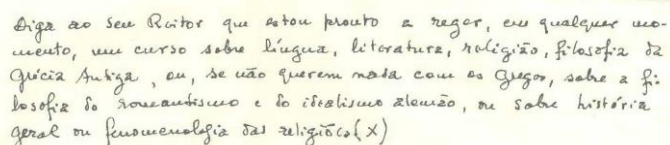 Diga ao seu Reitor que estou pronto a reger, em qualquer mo-
mento, um curso sobre língua, literatura, religião, filosofia da
Grécia Antiga, ou, se não querem nada com os Gregos, sobre a fi-
losofia do romantismo e do idealismo alemão, ou sobre história
geral ou fenomenologia das religiões (X)